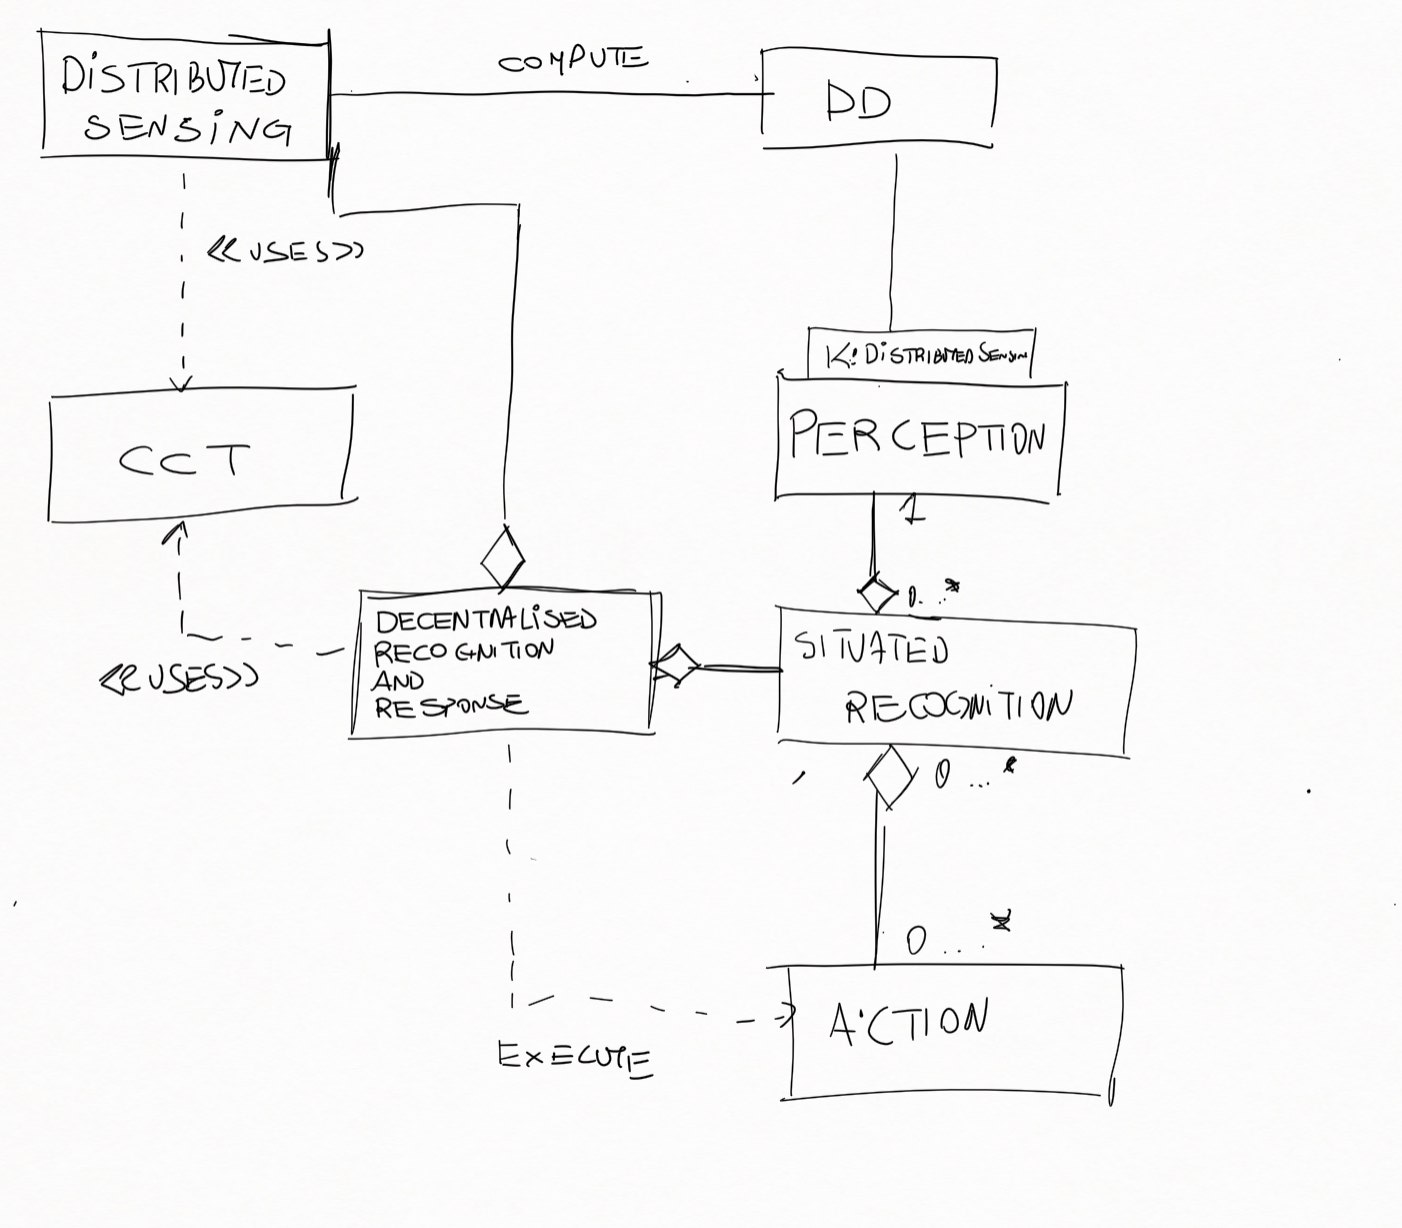 DISTRIBUTED
SENSING
COMPUTE
DD
<<USES>>
K: DISTRIBUTED SENSIN
CCT
PERCEPTION
1
0..*
DECENTRALISED
RECOGNITION
AND
RESPONSE
SITUATED
RECOGNITION
<<USES>>
0...*
0...*
ACTION
EXECUTE